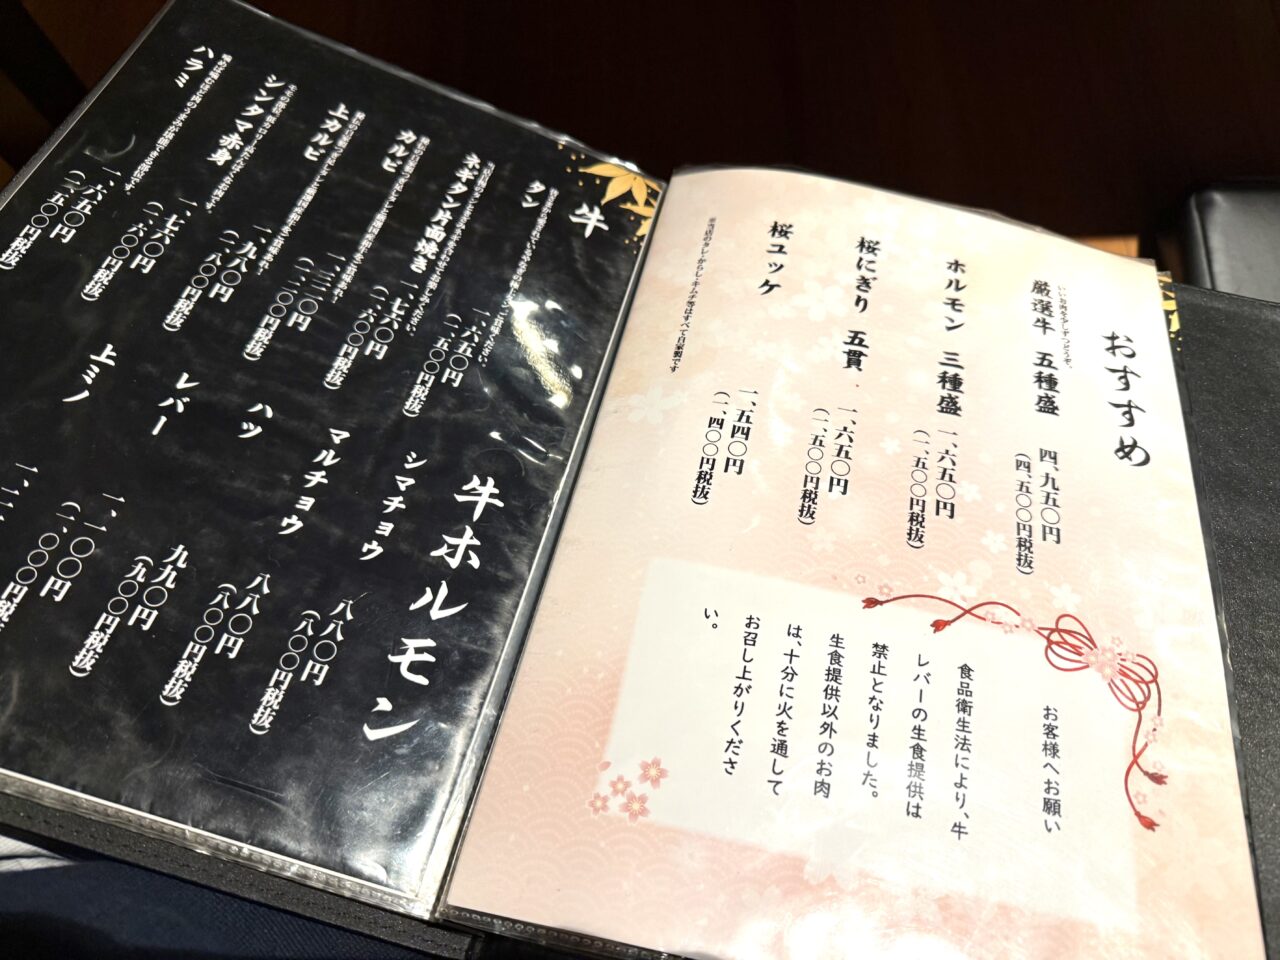 おすすめ
いいお肉を少しずつどうぞ。
厳選牛 五種盛 四、九五〇円
(四、五〇〇円税抜)
ホルモン 三種盛 一、六五〇円
(一、五〇〇円税抜)
桜にぎり 五貫 一、六五〇円
(一、五〇〇円税抜)
桜ユッケ 一、五四〇円
(一、四〇〇円税抜)
※当店のタレ・からし・キムチ等はすべて自家製です
お客様へお願い
食品衛生法により、牛
レバーの生食提供は
禁止となりました。
生食提供以外のお肉
は、十分に火を通して
お召し上がりくださ
い。
牛
タン 一、六五〇円
(一、五〇〇円税抜)
ネギタン片面焼き 一、七六〇円
(一、六〇〇円税抜)
カルビ 一、三二〇円
(一、二〇〇円税抜)
上カルビ 一、九八〇円
(一、八〇〇円税抜)
シンタマ赤身 一、七六〇円
(一、六〇〇円税抜)
ハラミ 一、六五〇円
(一、五〇〇円税抜)
牛ホルモン
シマチョウ 八八〇円
(八〇〇円税抜)
マルチョウ 八八〇円
(八〇〇円税抜)
ハツ 九九〇円
(九〇〇円税抜)
レバー 一、一〇〇円
(一、〇〇〇円税抜)
上ミノ